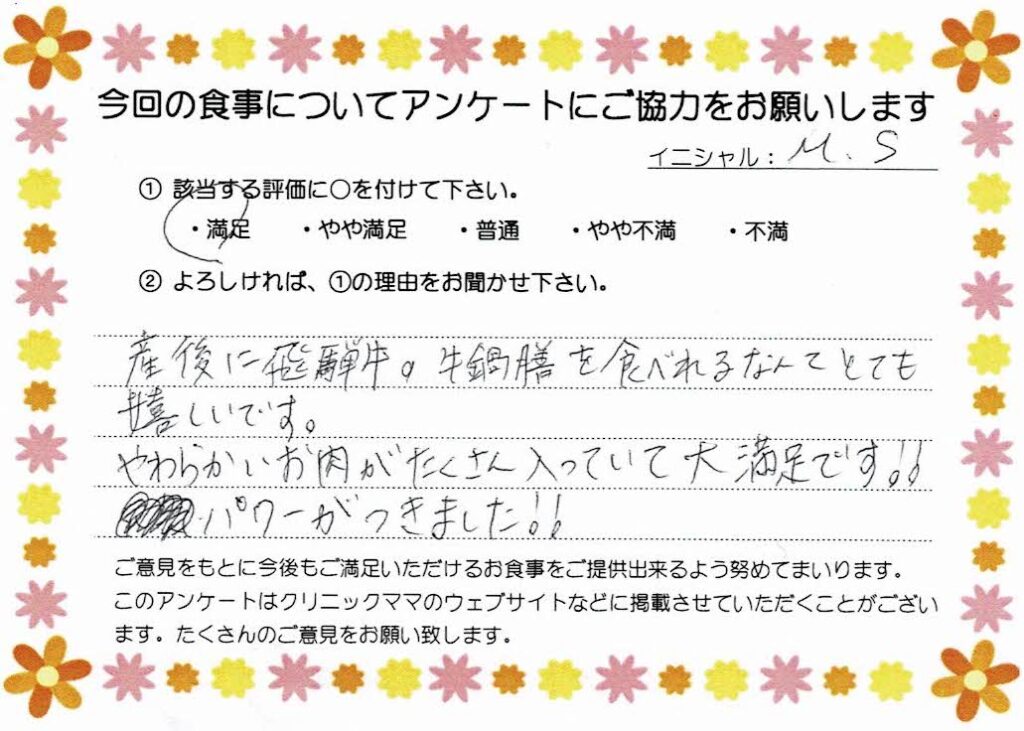 今回の食事についてアンケートにご協力をお願いします
イニシャル： M. S
① 該当する評価に○を付けて下さい。
・満足 ・やや満足 ・普通 ・やや不満 ・不満
② よろしければ、①の理由をお聞かせ下さい。
産後に飛騨牛の牛鍋膳を食べれるなんてとても
嬉しいです。
やわらかいお肉がたくさん入っていて大満足です!!
パワーがつきました!!
ご意見をもとに今後もご満足いただけるお食事をご提供出来るよう努めてまいります。
このアンケートはクリニックママのウェブサイトなどに掲載させていただくことがござい
ます。たくさんのご意見をお願い致します。